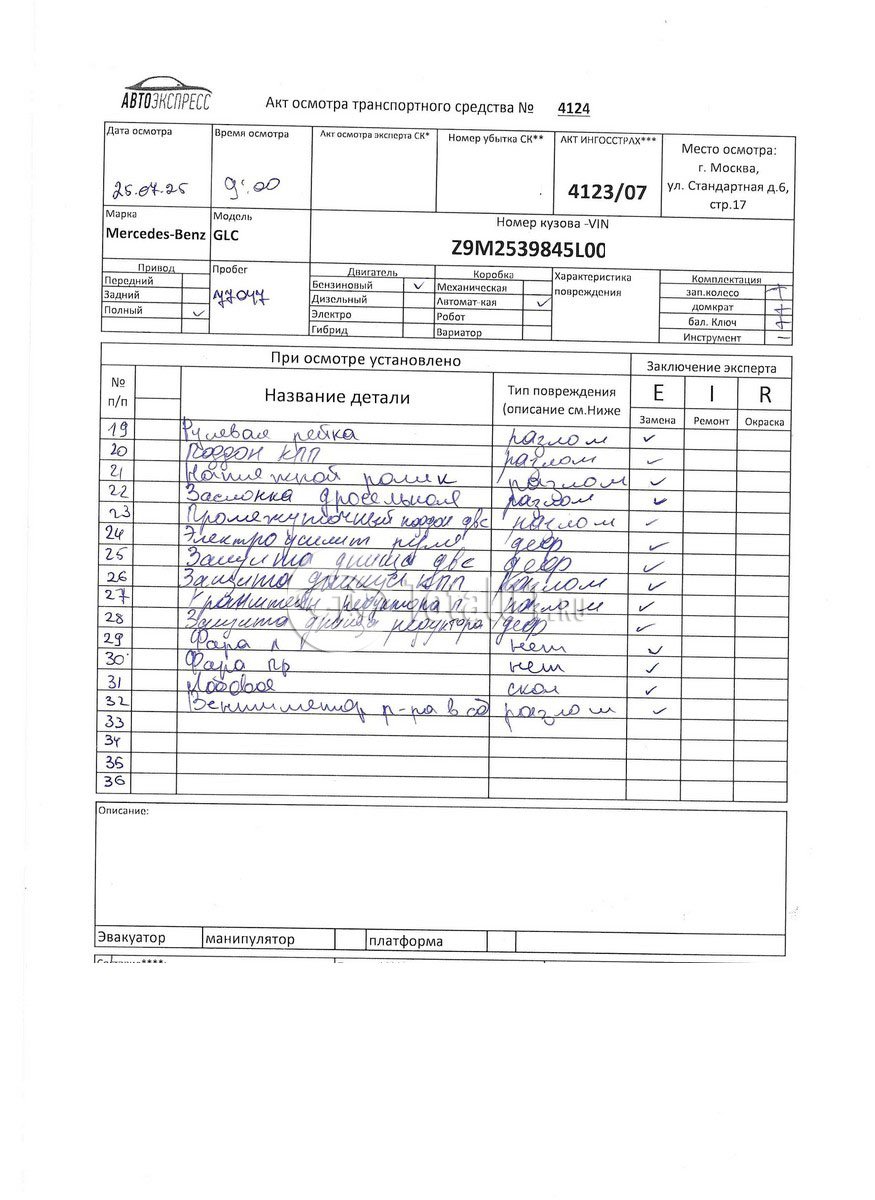 АВТОЭКСПРЕСС
Акт осмотра транспортного средства № 4124
Дата осмотра Время осмотра Акт осмотра эксперта СК* Номер убытка СК** АКТ ИНГОССТРАХ*** Место осмотра:
г. Москва,
25.07.25 9:00 4123/07 ул. Стандартная д.6,
стр.17
Марка Модель Номер кузова -VIN
Mercedes-Benz GLC Z9M2539845L00
Привод Пробег Двигатель Коробка Характеристика Комплектация
Передний 77047 Бензиновый ✓ Механическая повреждения зап.колесо
Задний Дизельный Автомат-кая ✓ домкрат
Полный ✓ Электро Робот бал. Ключ
Гибрид Вариатор Инструмент
При осмотре установлено Заключение эксперта
№ п/п Название детали Тип повреждения (описание см.Ниже E I R
Замена Ремонт Окраска
19 Рулевая рейка разлом ✓
20 Поддон КПП разлом ✓
21 Натяжной ролик разлом ✓
22 Заслонка дросельная разлом ✓
23 Промежуточный поддон двс разлом ✓
24 Электроусилит руля деф ✓
25 Защита днища двс деф ✓
26 Защита днища КПП разлом ✓
27 Кранштейн редуктора п. разлом ✓
28 Защита днища редуктора деф ✓
29 Фара л нет ✓
30 Фара пр нет ✓
31 Лобовое скол ✓
32 р-ра в сб разлом ✓
33
34
35
36
Описание:
Эвакуатор манипулятор платформа